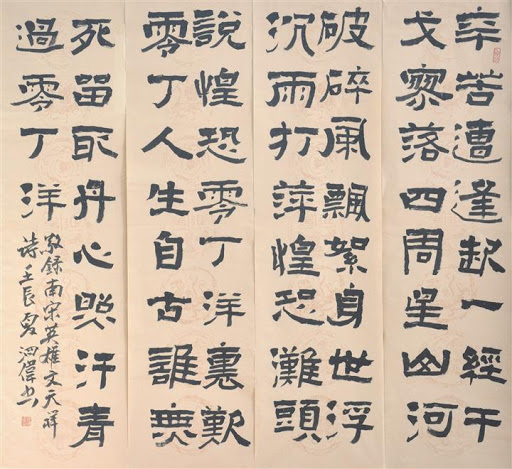 辛苦遭逢起一經干
戈寥落四周星山河
破碎風飄絮身世浮
沉雨打萍惶恐灘頭
說惶恐零丁洋裏歎
零丁人生自古誰無
死留取丹心照汗青
過零丁洋
敬録南宋英雄文天祥
詩壬辰夏偉書